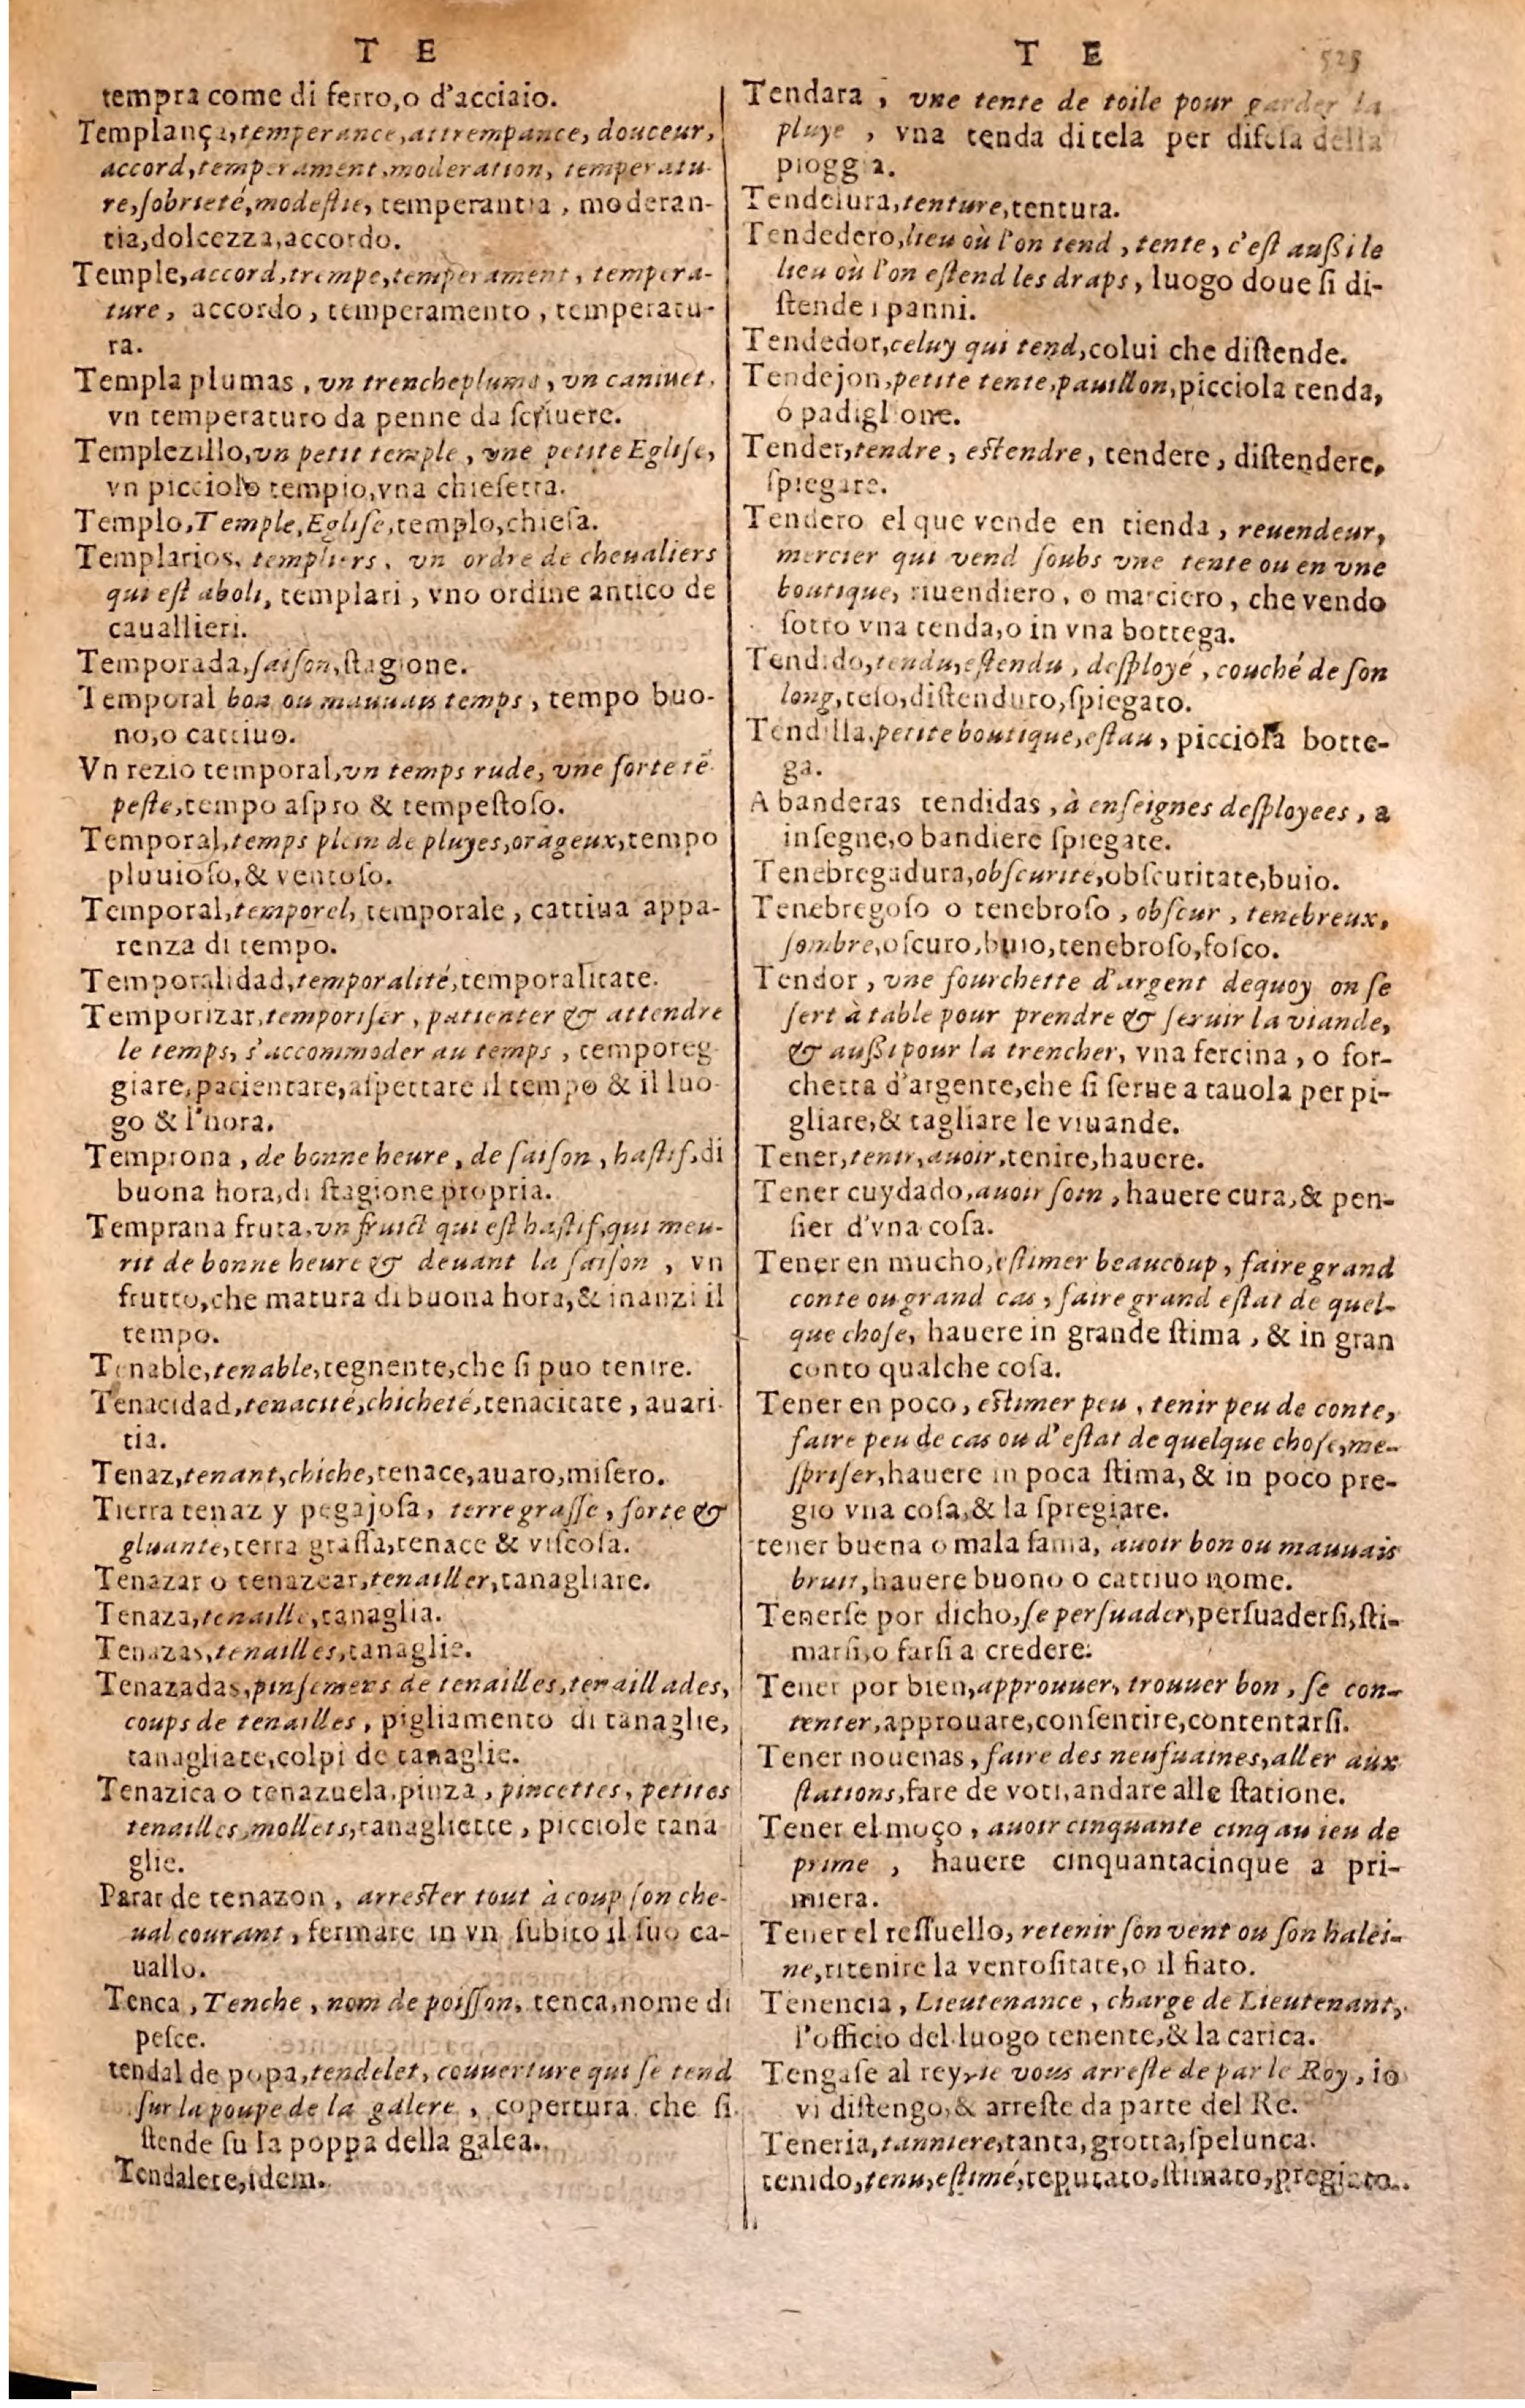 T E
tempra come di ferro,o d'acciaio.
Templança,temperance,attrempance, douceur,
accord,temperament,moderation, temperatu-
re,ſobrieté,modeſtie, temperantia, moderan-
tia,dolcezza,accordo.
Temple,accord,trempe,temperament, tempera-
ture, accordo, temperamento, temperatu-
ra.
Templa plumas, vn trencheplume, vn caniuet,
vn temperaturo da penne da ſcriuere.
Templezillo,vn petit temple, vne petite Egliſe,
vn picciolo tempio,vna chieſetta.
Templo,Temple,Egliſe,templo,chieſa.
Templarios, templiers, vn ordre de cheualiers
qui eſt aboli, templari, vno ordine antico de
cauallieri.
Temporada,ſaiſon,ſtagione.
Temporal bon ou mauuais temps, tempo buo-
no,o cattiuo.
Vn rezio temporal,vn temps rude, vne forte tẽ-
peſte,tempo aſpro & tempeſtoſo.
Temporal,temps plein de pluyes,orageux,tempo
pluuioſo,& ventoſo.
Temporal,temporel, temporale, cattiua appa-
renza di tempo.
Temporalidad,temporalité,temporalitate.
Temporizar,temporiſer, patienter & attendre
le temps, s'accommoder au temps, temporeg
giare,pacientare,aſpettare il tempo & il luo-
go & l'hora.
Temprona, de bonne heure, de ſaiſon, haſtif,di
buona hora,di ſtagione propria.
Temprana fruta,vn fruict qui eſt haſtif,qui meu-
rit de bonne heure & deuant la ſaiſon, vn
frutto,che matura di buona hora,& inanzi il
tempo.
Tenable,tenable,tegnente,che ſi puo tenire.
Tenacidad,tenacité,chicheté,tenacitate, auari-
tia.
Tenaz,tenant,chiche,tenace,auaro,miſero.
Tierra tenaz y pegajoſa, terre graſſe, forte &
gluante,terra graſſa,tenace & viſcoſa.
Tenazar o tenazear,tenailler,tanagliare.
Tenaza,tenaille,tanaglia.
Tenazas,tenailles,tanaglie.
Tenazadas,pinſemens de tenailles,tenaillades,
coups de tenailles, pigliamento di tanaglie,
tanagliate,colpi de tanaglie.
Tenazica o tenazuela,pinza, pincettes, petites
tenailles,mollets,tanagliette, picciole tana
glie.
Parar de tenazon, arreſter tout à coup ſon che-
ual courant, fermare in vn ſubito il ſuo ca-
uallo.
Tenca, Tenche, nom de poiſſon, tenca,nome di
peſce.
tendal de popa,tendelet, couuerture qui ſe tend
ſur la poupe de la galere, copertura che ſi
ſtende ſu la poppa della galea.
Tendalete,idem.
T E 523
Tendara, vne tente de toile pour garder la
pluye, vna tenda di tela per difeſa della
pioggia.
Tendeiura,tenture,tentura.
Tendedero,lieu où l'on tend, tente, c'eſt auſſi le
lieu où l'on eſtend les draps, luogo doue ſi di-
ſtende i panni.
Tendedor,celuy qui tend,colui che diſtende.
Tendejon,petite tente,pauillon,picciola tenda,
o padiglione.
Tender,tendre, eſtendre, tendere, diſtendere,
ſpiegare.
Tendero el que vende en tienda, reuendeur,
mercier qui vend ſoubs vne tente ou en vne
boutique, riuendiero, o marciero, che vendo
ſotto vna tenda,o in vna bottega.
Tendido,tendu,eſtendu, deſployé, couché de ſon
long,teſo,diſtenduto,ſpiegato.
Tendilla,petite boutique,eſtau, picciola botte-
ga.
A banderas tendidas, à enſeignes deſployees, a
inſegne,o bandiere ſpiegate.
Tenebregadura,obſcurité,obſcuritate,buio.
Tenebregoſo o tenebroſo, obſcur, tenebreux,
ſombre,oſcuro,buio,tenebroſo,foſco.
Tendor, vne fourchette d'argent dequoy on ſe
ſert à table pour prendre & ſeruir la viande,
& auſſi pour la trencher, vna fercina, o for-
chetta d'argente,che ſi ſerue a tauola per pi-
gliare,& tagliare le viuande.
Tener,tenir,auoir,tenire,hauere.
Tener cuydado,auoir ſoin, hauere cura,& pen-
ſier d'vna coſa.
Tener en mucho,eſtimer beaucoup, faire grand
conte ou grand cas, faire grand eſtat de quel-
que choſe, hauere in grande ſtima, & in gran
conto qualche coſa.
Tener en poco, eſtimer peu, tenir peu de conte,
faire peu de cas ou d'eſtat de quelque choſe,me-
ſpriſer,hauere in poca ſtima, & in poco pre-
gio vna coſa,& la ſpregiare.
tener buena o mala fama, auoir bon ou mauuais
bruit,hauere buono o cattiuo nome.
Tenerſe por dicho,ſe perſuader,perſuaderſi,ſti-
marſi,o farſi a credere.
Tener por bien,approuuer, trouuer bon, ſe con-
tenter,approuare,conſentire,contentarſi.
Tener nouenas, faire des neufuaines,aller aux
ſtations,fare de voti,andare alle ſtatione.
Tener el moço, auoir cinquante cinq au ieu de
prime, hauere cinquantacinque a pri-
miera.
Tener el reſſuello, retenir ſon vent ou ſon halei-
ne,ritenire la ventoſitate,o il fiato.
Tenencia, Lieutenance, charge de Lieutenant,
l'officio del luogo tenente,& la carica.
Tengaſe al rey,ie vous arreſte de par le Roy, io
vi diſtengo,& arreſte da parte del Re.
Teneria,tanniere,tanta,grotta,ſpelunca.
tenido,tenu,eſtimé,reputato,ſtimato,pregiato.